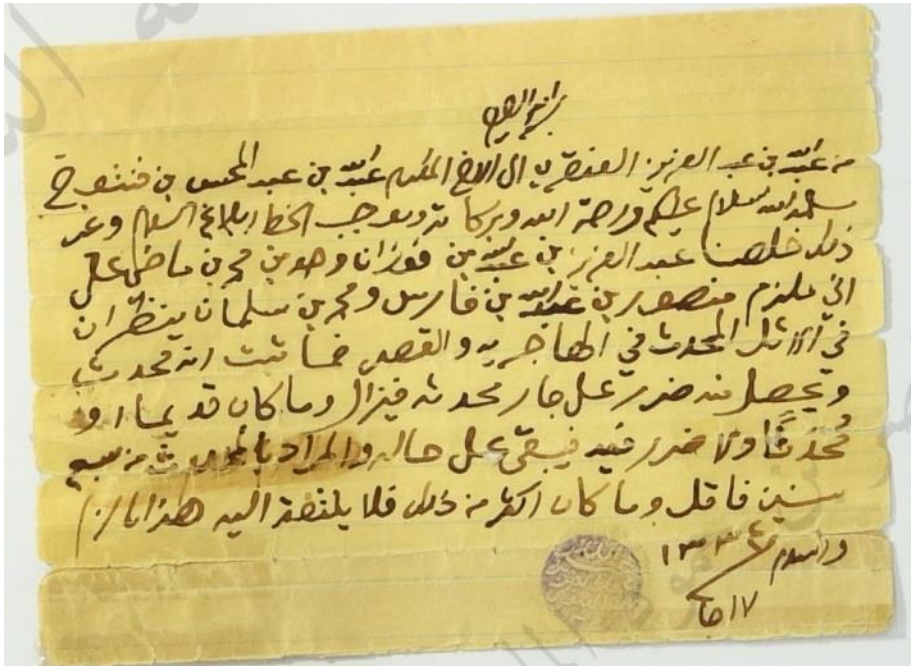 بسم الله الرحمن الرحيم
من عبدالله بن عبد العزيز العنقري الى الاخ المكرم عبدالله بن عبد المحسن بن فنتوخ
سلمه الله سلام عليكم ورحمة الله وبركاته وموجب الخط ابلاغ السلام وغير
ذلك خلصنا عبد العزيز بن عبدالله بن فوزان وحمد بن محمد بن ماضي على
اني ملزم منصور بن عبدالله بن فارس ومحمد بن سلمان ينظران
في الاثل المحدث في الهاجريه والقصر فما ثبت انه محدث
ويحصل منه ضرر على جار محدثه فيزال وما كان قديما او
محدثًا ولا ضرر فيه فيبقى على حاله والمراد بالمحدث من سبع
سنين فاقل وما كان اكثر من ذلك فلا يلتفت اليه هذا ما لزم
والسلام ١٣٣٤
١٧